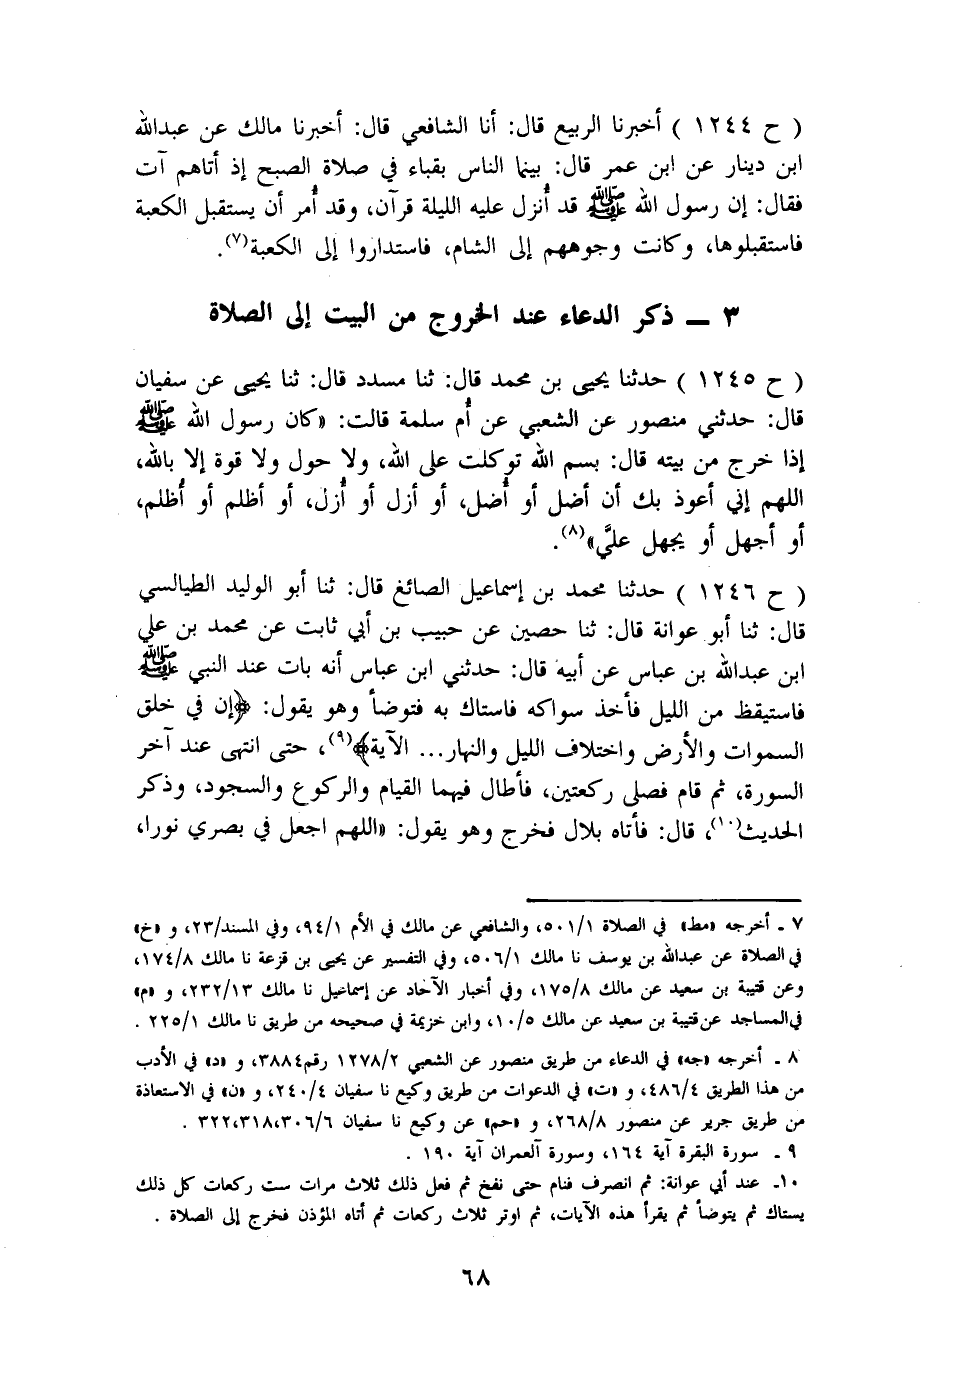 ( ح ١٢٤٤ ) أخبرنا الربيع قال: أنا الشافعي قال: أخبرنا مالك عن عبدالله
ابن دينار عن ابن عمر قال: بينما الناس بقباء في صلاة الصبح إذ أتاهم آت
فقال: إن رسول الله ﷺ قد أُنزل عليه الليلة قرآن، وقد أُمر أن يستقبل الكعبة
فاستقبلوها، وكانت وجوههم إلى الشام، فاستداروا إلى الكعبة(٧).
٣ ــ ذكر الدعاء عند الخروج من البيت إلى الصلاة
( ح ١٢٤٥ ) حدثنا يحيى بن محمد قال: ثنا مسدد قال: ثنا يحيى عن سفيان
قال: حدثني منصور عن الشعبي عن أُم سلمة قالت: «كان رسول الله ﷺ
إذا خرج من بيته قال: بسم الله توكلت على الله، ولا حول ولا قوة إلا بالله،
اللهم إني أعوذ بك أن أضل أو أُضل، أو أزل أو أُزل، أو أظلم أو أُظلم،
أو أجهل أو يجهل عليَّ»(٨).
( ح ١٢٤٦ ) حدثنا محمد بن إسماعيل الصائغ قال: ثنا أبو الوليد الطيالسي
قال: ثنا أبو عوانة قال: ثنا حصين عن حبيب بن أبي ثابت عن محمد بن علي
ابن عبدالله بن عباس عن أبيه قال: حدثني ابن عباس أنه بات عند النبي ﷺ
فاستيقظ من الليل فأخذ سواكه فاستاك به فتوضأ وهو يقول: ﴿إن في خلق
السموات والأرض واختلاف الليل والنهار... الآية﴾(٩)، حتى انتهى عند آخر
السورة، ثم قام فصلى ركعتين، فأطال فيهما القيام والركوع والسجود، وذكر
الحديث(١٠)، قال: فأتاه بلال فخرج وهو يقول: «اللهم اجعل في بصري نورا،
٧ ـ أخرجه «مط» في الصلاة ٥٠١/١، والشافعي عن مالك في الأم ٩٤/١، وفي المسند/٢٣، و «خ»
في الصلاة عن عبدالله بن يوسف نا مالك ٥٠٦/١، وفي التفسير عن يحيى بن قزعة نا مالك ١٧٤/٨،
وعن قتيبة بن سعيد عن مالك ١٧٥/٨، وفي أخبار الآحاد عن إسماعيل نا مالك ٢٣٢/١٣، و «م»
في المساجد عن قتيبة بن سعيد عن مالك ١٠/٥، وابن خزيمة في صحيحه من طريق نا مالك ٢٢٥/١ .
٨ ـ أخرجه «جه» في الدعاء من طريق منصور عن الشعبي ١٢٧٨/٢ رقم٣٨٨٤، و «د» في الأدب
من هذا الطريق ٤٨٦/٤، و «ت» في الدعوات من طريق وكيع نا سفيان ٢٤٠/٤، و «ن» في الاستعاذة
من طريق جرير عن منصور ٢٦٨/٨، و «حم» عن وكيع نا سفيان ٣٢٢،٣١٨،٣٠٦/٦ .
٩ ـ سورة البقرة آية ١٦٤، وسورة آلعمران آية ١٩٠ .
١٠ـ عند أبي عوانة: ثم انصرف فنام حتى نفخ ثم فعل ذلك ثلاث مرات ست ركعات كل ذلك
يستاك ثم يتوضأ ثم يقرأ هذه الآيات، ثم اوتر ثلاث ركعات ثم أتاه المؤذن فخرج إلى الصلاة .
٦٨